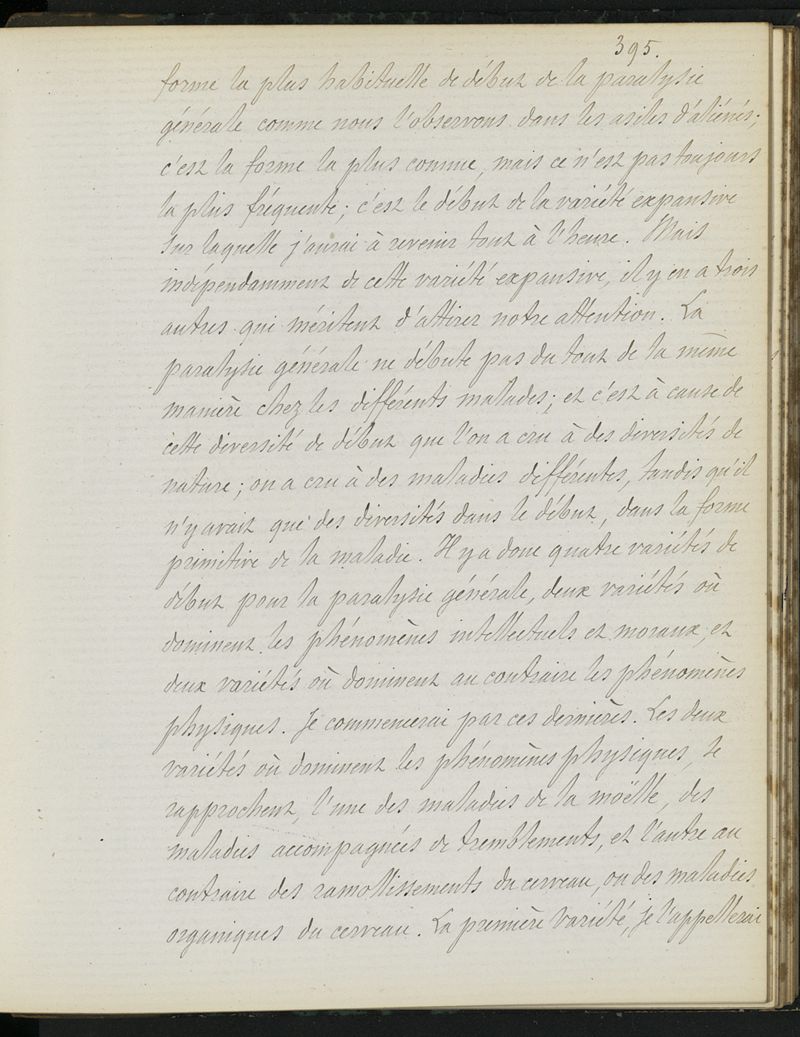 395.
forme la plus habituelle de début de la paralysie
générale comme nous l'observons dans les asiles d'aliénés;
c'est la forme la plus connue, mais ce n'est pas toujours
la plus fréquente; c'est le début de la variété expansive
sur laquelle j'aurai à revenir tout à l'heure. Mais
indépendamment de cette variété expansive, il y en a trois
autres qui méritent d'attirer notre attention. La
paralysie générale ne débute pas du tout de la même
manière chez les différents malades; et c'est à cause de
cette diversité de début que l'on a cru à des diversités de
nature; on a cru à des maladies différentes, tandis qu'il
n'y avait que des diversités dans le début, dans la forme
primitive de la maladie. Il y a donc quatre variétés de
début pour la paralysie générale, deux variétés où
dominent les phénomènes intellectuels et moraux, et
deux variétés où dominent au contraire les phénomènes
physiques. Je commencerai par ces dernières. Les deux
variétés où dominent les phénomènes physiques, se
rapprochent, l'une des maladies de la moëlle, des
maladies accompagnées de tremblements, et l'autre au
contraire des ramollissements du cerveau, ou des maladies
organiques du cerveau. La première variété, je l'appellerai